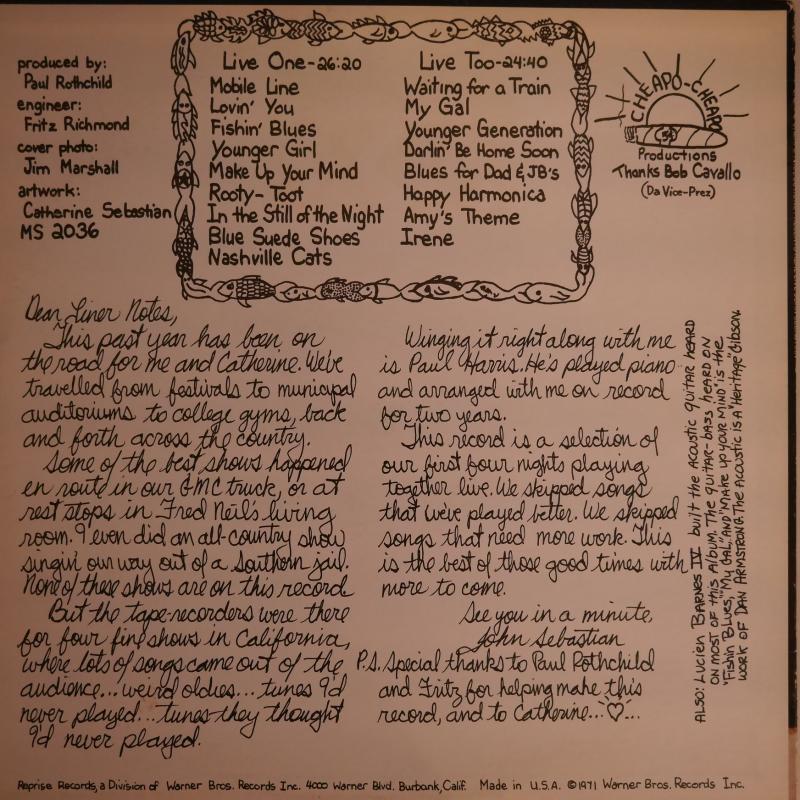 produced by:
Paul Rothchild
engineer:
Fritz Richmond
cover photo:
Jim Marshall
artwork:
Catherine Sebastian
MS 2036
Live One-26:20
Mobile Line
Lovin' You
Fishin' Blues
Younger Girl
Make Up Your Mind
Rooty-Toot
In the Still of the Night
Blue Suede Shoes
Nashville Cats
Live Too-24:40
Waiting for a Train
My Gal
Younger Generation
Darlin' Be Home Soon
Blues for Dad & JB's
Happy Harmonica
Amy's Theme
Irene
CHEAPO-CHEAPO
Productions
Thanks Bob Cavallo
(Da Vice-Prez)
Dear Liner Notes,
This past year has been on
the road for me and Catherine. We've
travelled from festivals to municipal
auditoriums to college gyms, back
and forth across the country.
Some of the best shows happened
en route in our GMC truck, or at
rest stops in Fred Neil's living
room. I even did an all-country show
singin' our way out of a Southern jail.
None of these shows are on this record.
But the tape-recorders were there
for four fine shows in California,
where lots of songs came out of the
audience... weird oldies... tunes I'd
never played... tunes they thought
I'd never played.
Winging it right along with me
is Paul Harris. He's played piano
and arranged with me on record
for two years.
This record is a selection of
our first four nights playing
together live. We skipped songs
that we've played better. We skipped
songs that need more work. This
is the best of those good times with
more to come.
See you in a minute,
John Sebastian
P.S. Special thanks to Paul Rothchild
and Fritz for helping make this
record, and to Catherine...♡...
ALSO: LUCIEN BARNES IV built the ACOUSTIC GUITAR HEARD
ON MOST OF THIS ALBUM. THE GUITAR-BASS HEARD ON
"FISHIN BLUES," "MY GAL," AND "MAKE UP YOUR MIND" IS THE
WORK OF DAN ARMSTRONG. THE ACOUSTIC IS A "HERITAGE" GIBSON.
Reprise Records, a Division of Warner Bros. Records Inc. 4000 Warner Blvd. Burbank, Calif. Made in U.S.A. ©1971 Warner Bros. Records Inc.